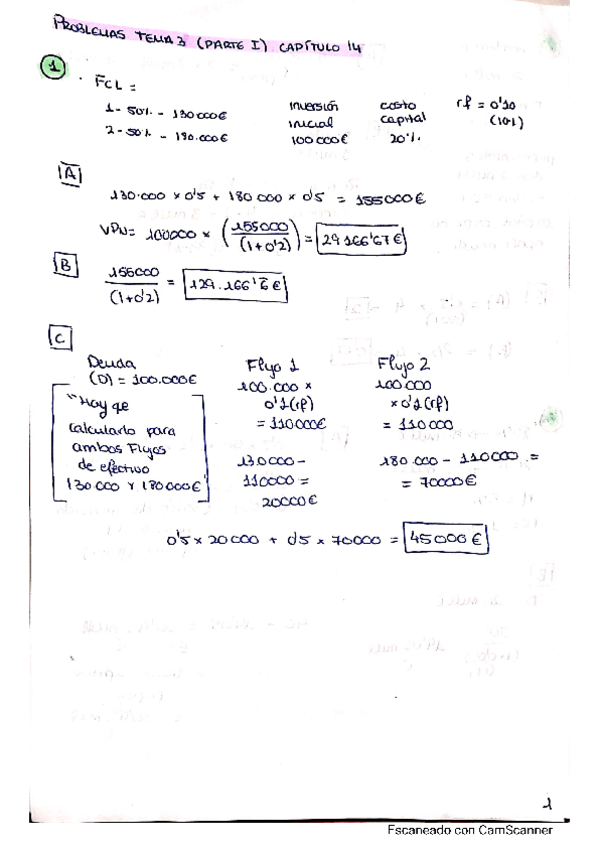 PROBLEMAS TEMA 3 (PARTE I) CAPÍTULO 14
1 · FCL =
1 - 50% - 130000€
2 - 50% - 180.000€
inversión inicial 100000€
costo capital 20%
rf = 0'10 (10%)
A
130.000 x 0'5 + 180 000 x 0'5 = 155000€
VPN = 100000 x (155000 / (1+0'2)) = 29166'67€
B
155000 / (1+0'2) = 129.166'6€
C
Deuda
(D) = 100.000€
"Hay que
calcularlo para
ambos Flujos
de efectivo
130.000 y 180000€
Flujo 1
100.000 x
0'1(rf)
= 110000€
130000 -
110000 =
20000€
Flujo 2
100.000
x 0'1(rf)
= 110000
180.000 - 110000 =
= 70000€
0'5 x 20000 + 0'5 x 70000 = 45000€
1
Escaneado con CamScanner